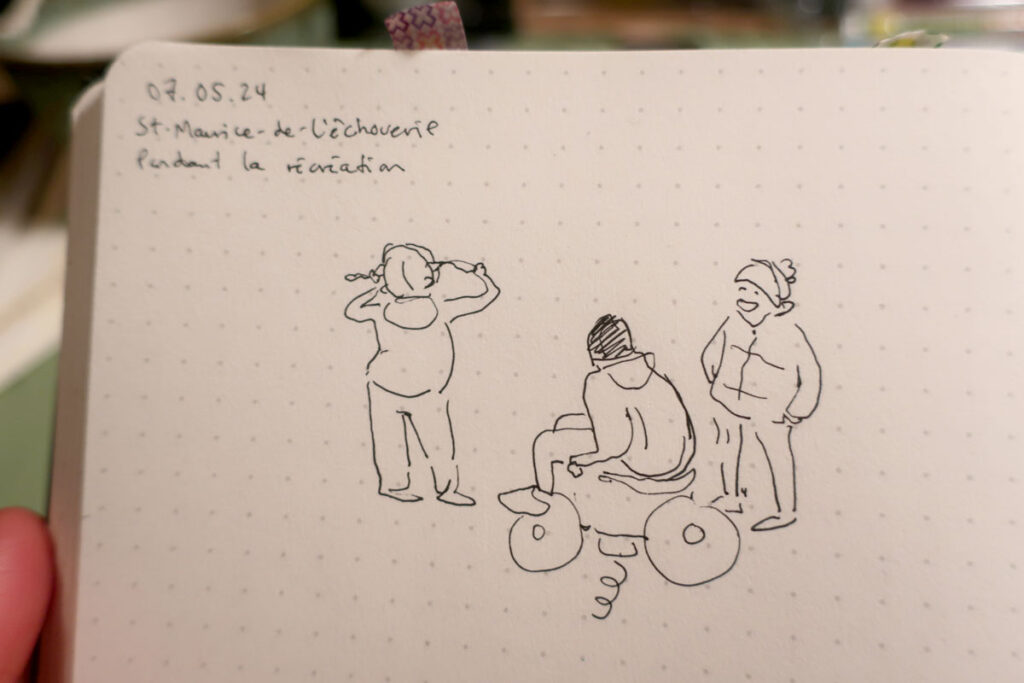 07.05.24
St-Maurice-de-L'échouerie
Pendant la récréation